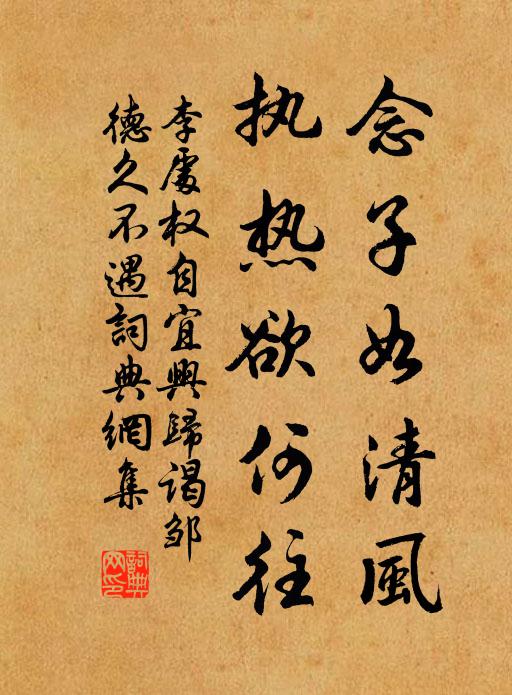 念子如清風
执热欲何往
李處权自宜興歸谒邹
德久不遇詞典網集
詞典
网印